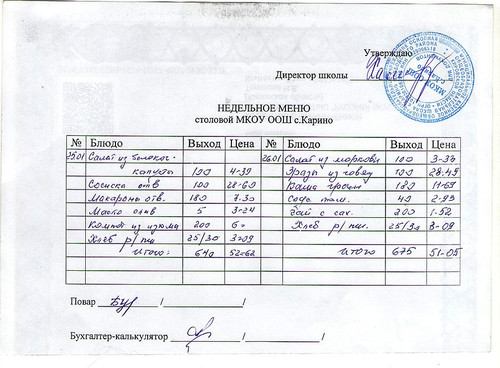 Утверждаю
Директор школы
НЕДЕЛЬНОЕ МЕНЮ
столовой МКОУ ООШ с.Карино
№ Блюдо Выход Цена № Блюдо Выход Цена
25.01 Салат из белокоч. 26.01 Салат из моркови 100 3-33
капусты 100 4-39 Зразы из говяд 100 28-49
Сосиска отв 100 28-60 Каша греч 180 11-69
Макароны отв. 180 7.30 Соус том. 40 2-93
Масло слив 5 3-24 Чай с сах. 200 1-52
Компот из изюма 200 6= Хлеб р/пш. 25/30 3-09
Хлеб р/пш 25/30 3-09 Итого: 675 51-05
Итого: 640 52-62
Повар / /
Бухгалтер-калькулятор / /